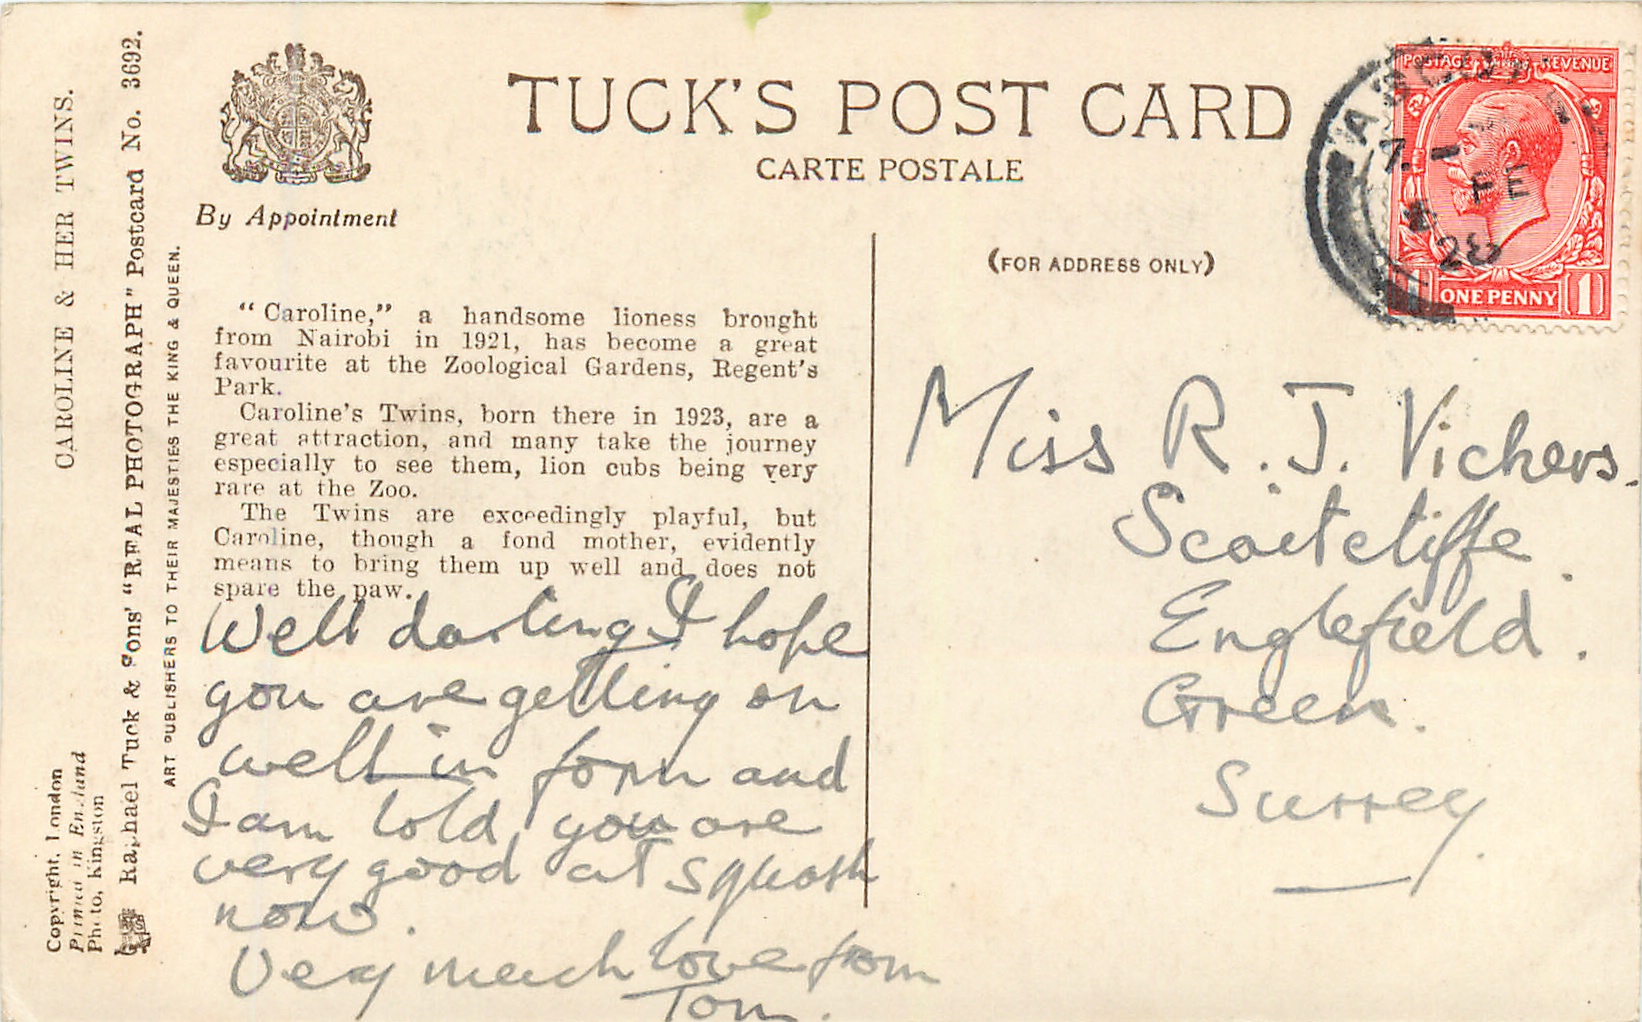 CAROLINE & HER TWINS.
Raphael Tuck & Sons' "REAL PHOTOGRAPH" Postcard No. 3692.
ART PUBLISHERS TO THEIR MAJESTIES THE KING & QUEEN.
Copyright, London
Printed in England
Photo, Kingston
By Appointment
TUCK'S POST CARD
CARTE POSTALE
(FOR ADDRESS ONLY)
POSTAGE REVENUE
ASCOT
7.
FE
28
1 ONE PENNY 1
"Caroline," a handsome lioness brought
from Nairobi in 1921, has become a great
favourite at the Zoological Gardens, Regent's
Park.
Caroline's Twins, born there in 1923, are a
great attraction, and many take the journey
especially to see them, lion cubs being very
rare at the Zoo.
The Twins are exceedingly playful, but
Caroline, though a fond mother, evidently
means to bring them up well and does not
spare the paw.
Well darling I hope
you are getting on
well in form and
I am told you are
very good at squash
now.
Very much love from
Tom.
Miss R. J. Vickers.
Scaitcliffe
Englefield.
Green.
Surrey.